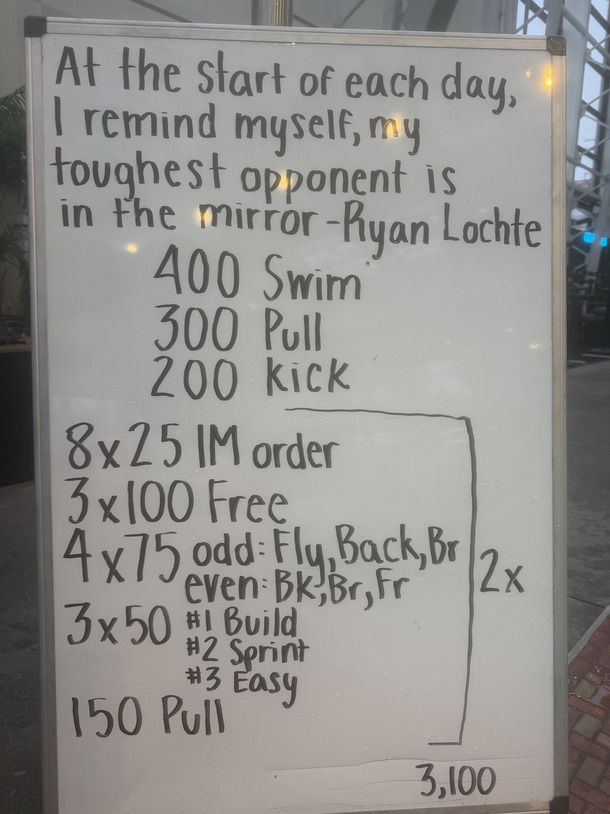 At the start of each day,
I remind myself, my
toughest opponent is
in the mirror -Ryan Lochte
400 Swim
300 Pull
200 kick
8x25 IM order
3x100 Free
4x75 odd: Fly, Back, Br
even: BK, Br, Fr
3x50 #1 Build
#2 Sprint
#3 Easy
150 Pull
2x
3,100